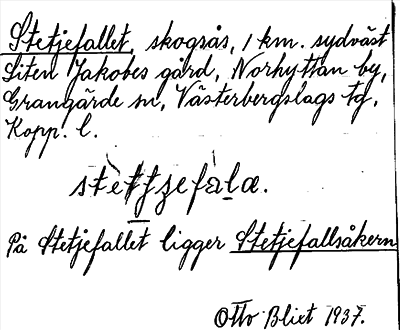 Stetjefallet, skogsås, 1 km. sydväst
Liten Jakobes gård, Norhyttan by,
Grangärde sn, Västerbergslags tg,
Kopp. l.
På Stetjefallet ligger Stetjefallsåkern
Otto Blixt 1937.